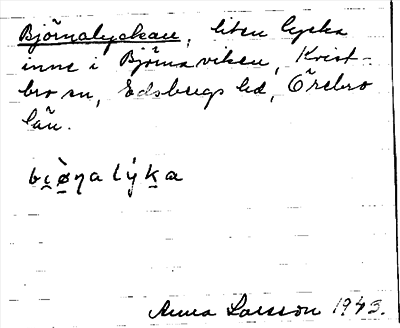 Björnalyckan, liten lycka
inne i Björnaviken, Kvist-
bro sn, Edsbergs hd, Örebro
län.
bi̯ø̀ṇalýḵa
Anna Larsson 1943.